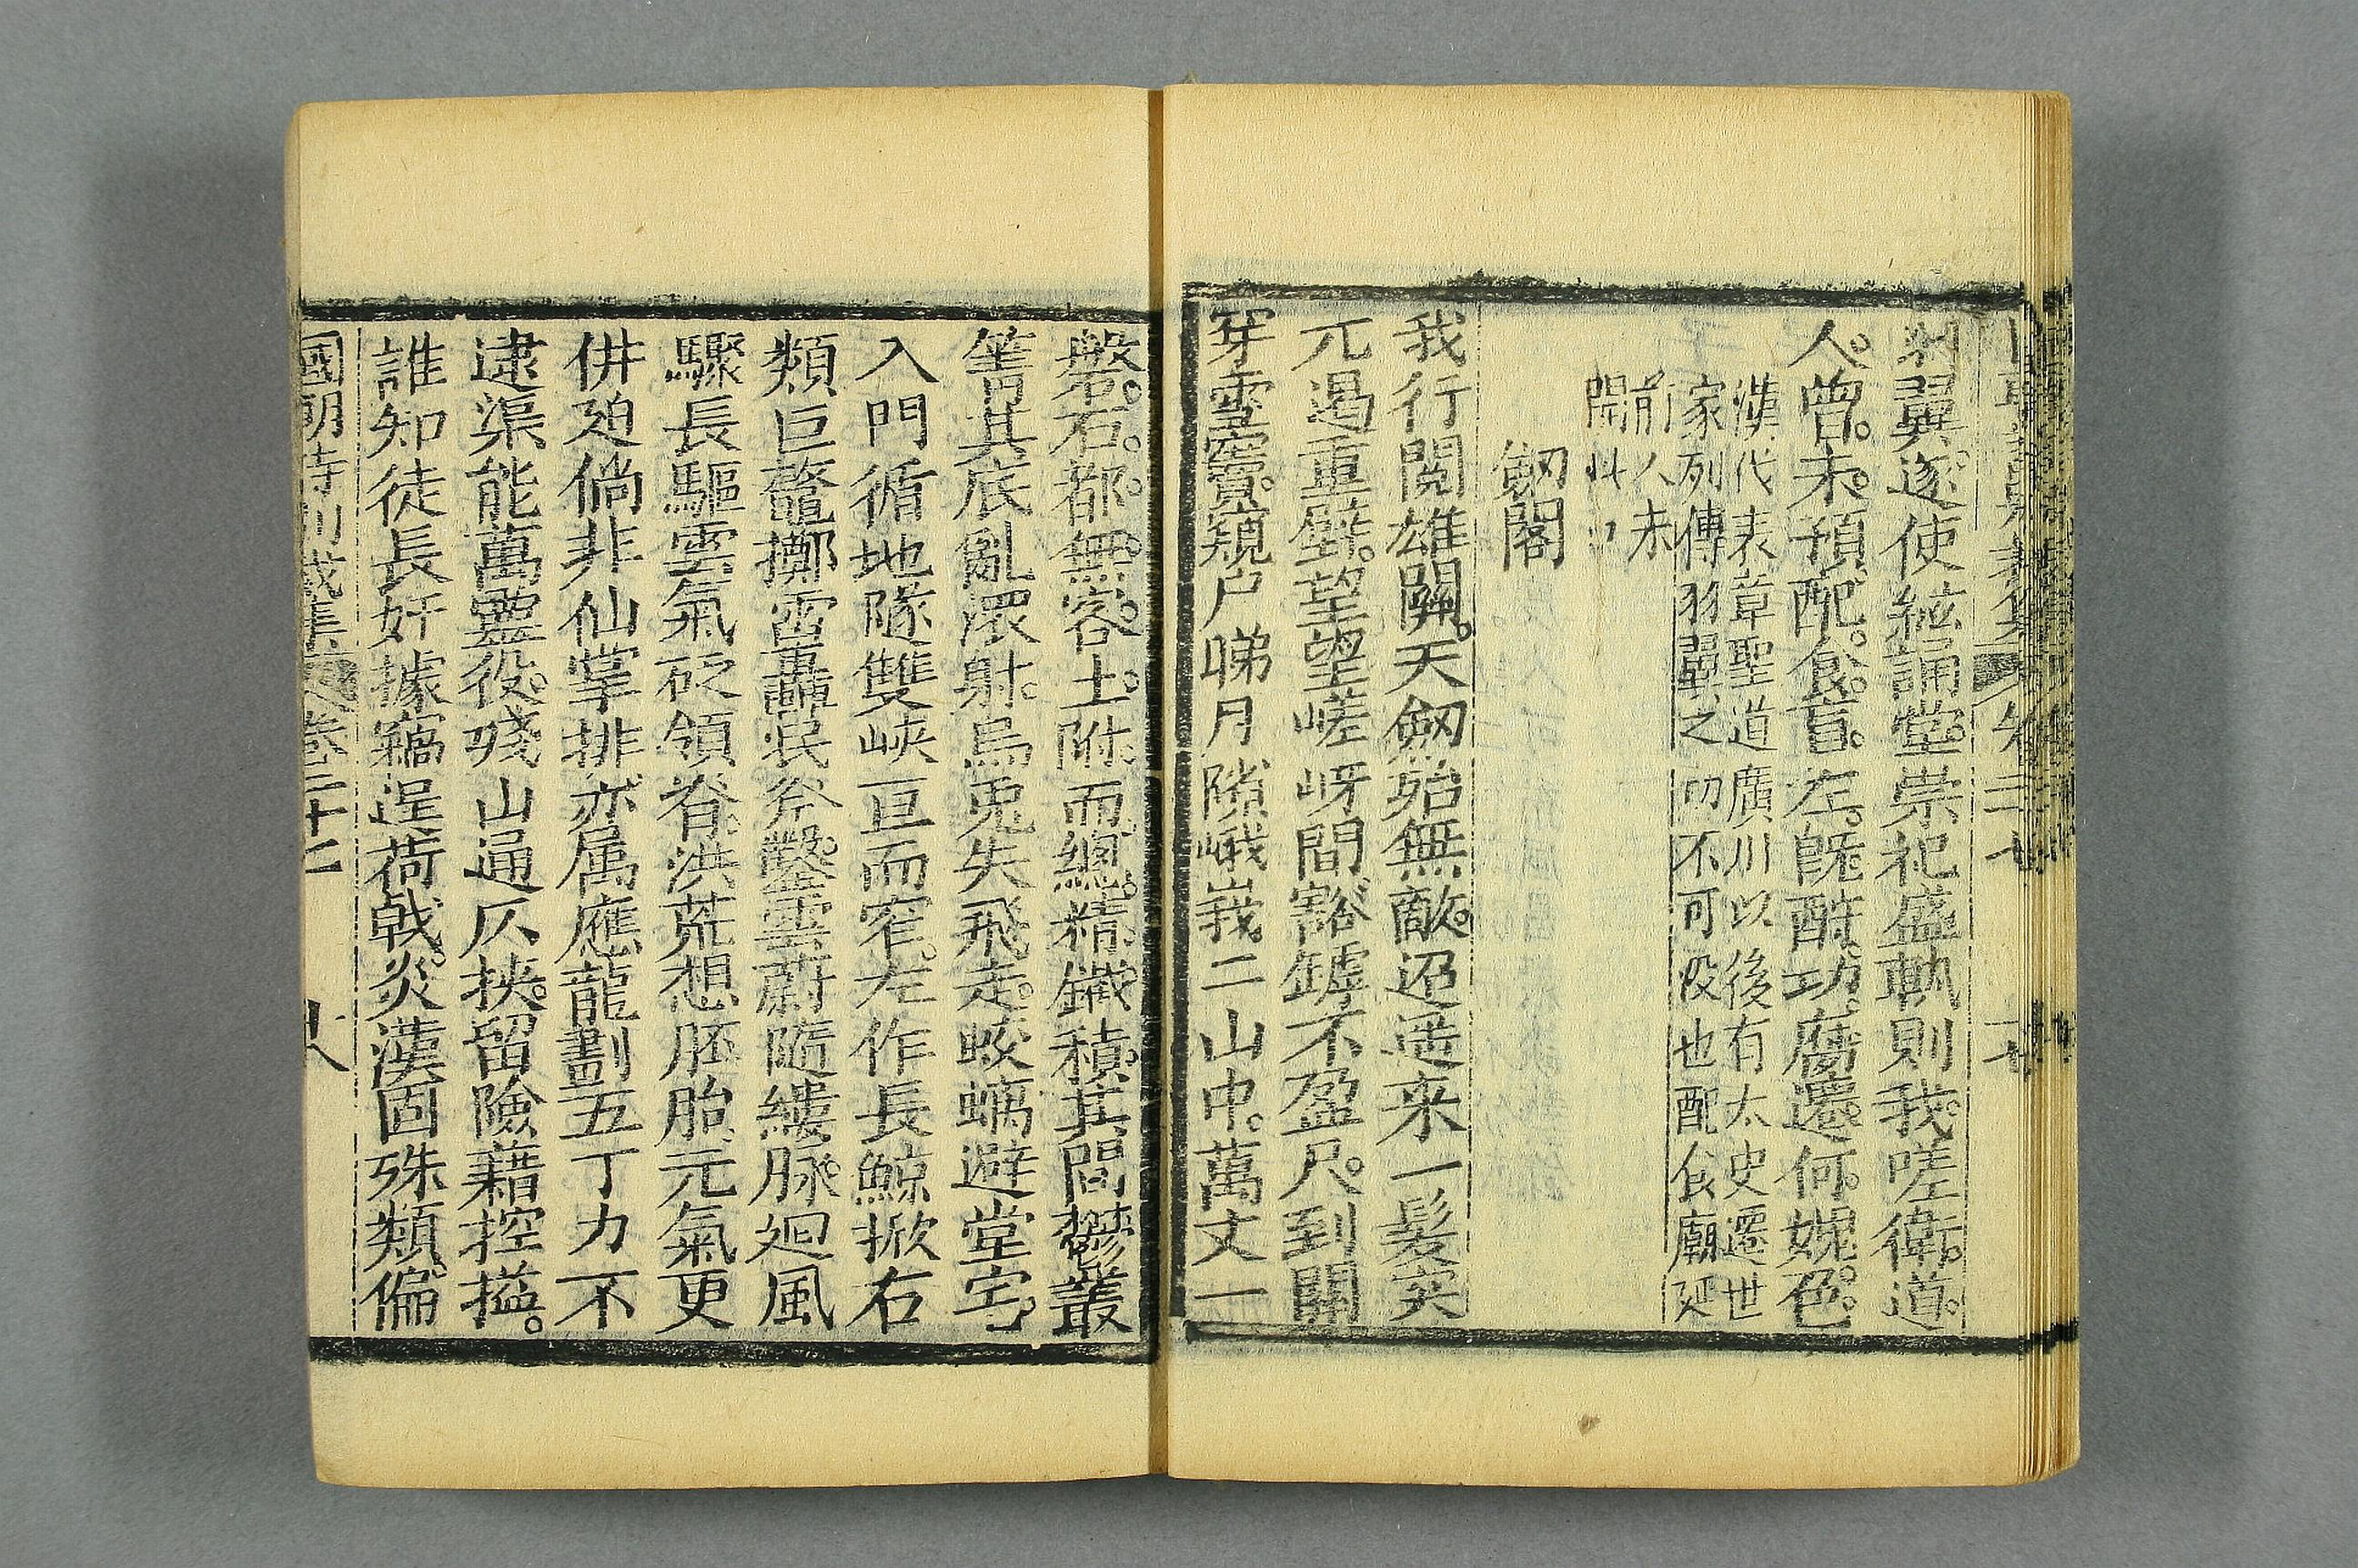 羽翼遂使絃誦堂崇祀盛執則我嗟衛道
人曾未預配食盲左既酧功腐遷何媿色
漢代表章聖道廣川以後有太史遷世
家列傳羽翼之功不可没也配食廟延
前人未
開此口
劔閣
我行閱雄關天劔殆無敵迢遥来一髪突
兀過重壁望望嵯岈間豁罅不盈尺到關
穿靈竇窺户睇月隙峨峩二山中萬丈一
磐石都無客土附而縋精鐵積其間鬱叢
箐其底亂澴射烏兎失飛走蛟螭避堂宅
入門循地隧雙峽亘而窄左作長鯨掀右
類巨鼇擲雷轟泯斧鑿雲蔚隨縷脉廻風
驟長驅雲氣砭領脊洪荒想胚胎元氣更
併廹倘非仙掌排亦属應龍劃五丁力不
逮渠能萬靈役殘山逼仄挾留險藉控搤
誰知徒長奸據竊逞荷戟炎漢固殊類偏
國朝詩別裁集 卷三十二